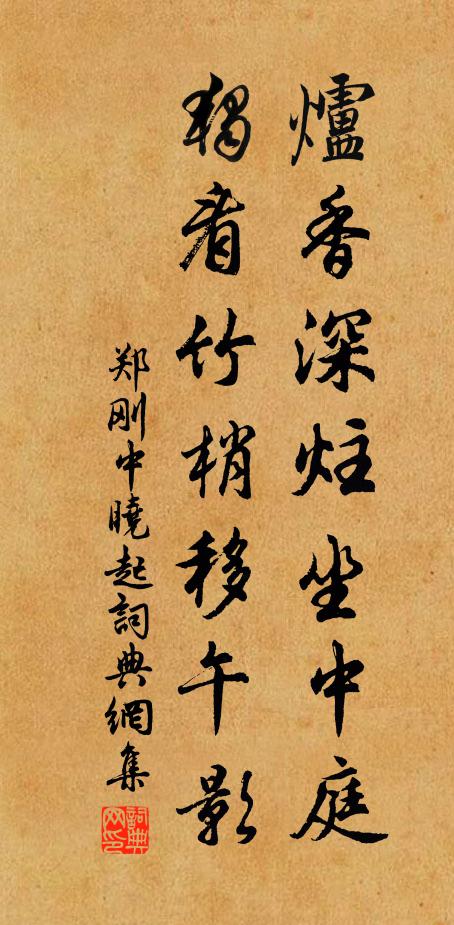 爐香深炷坐中庭
獨看竹梢移午影
郑刚中曉起詞典網集
詞典网印